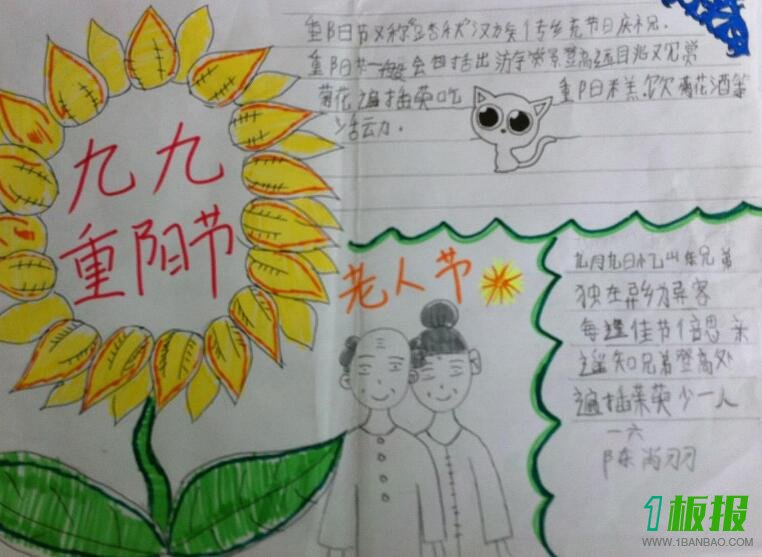 九九
重阳节
重阳节又称"踏秋"汉族传统节日庆祝
重阳节一般会包括出游赏景登高远目兆又见赏
菊花遍插茱吃 重阳米羔饮菊花酒等
活云力.
老人节
九月九日忆山东兄弟
独在异乡为异客
每逢佳节倍思亲
遥知兄弟登高处
遍插茱萸少一人
一六
陈尚羽
1板报
WWW.1BANBAO.COM